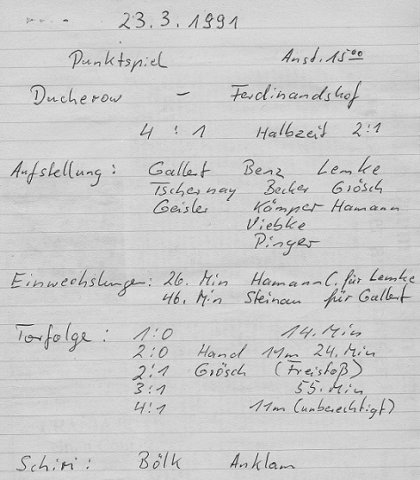 23.3.1991
Punktspiel Anst. 15⁰⁰
Ducherow - Ferdinandshof
4 : 1 Halbzeit 2:1
Aufstellung: Gallert Benz Lemke
Tschernay Becker Grösch
Geisler Kämper Hamann
Viebke
Pinger
Einwechslungen: 26. Min Hamann C. für Lemke
46. Min Steinau für Gallert
Torfolge: 1:0 14. Min
2:0 Hand 11m 24. Min
2:1 Grösch (Freistoß)
3:1 55. Min
4:1 11m (unberechtigt)
Schiri: Bölk Anklam